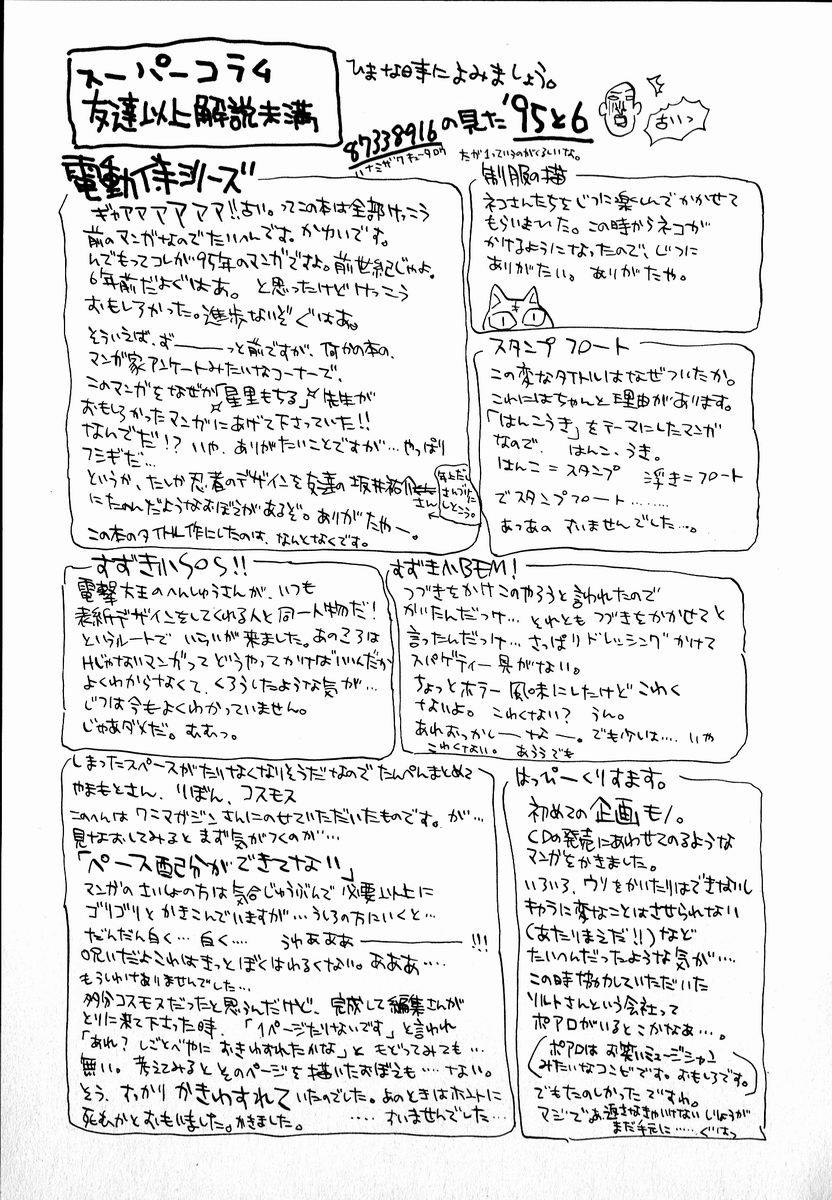 スーパーコラム
友達以上解説未満
ひまな時によみましょう。
87338916の見た'95と6
ハナミザワキュータロウ
古いっ
電動侍シリーズ
ギャアアアアアア!!古い。ってこの本は全部けっこう
前のマンガなのでたいへんです。かわいです。
んでもってコレが95年のマンガですよ。前世紀じゃよ。
6年前だよぐはあ。 と思ったけどけっこう
おもしろかった。進歩ないぞぐはあ。
そういえば、ず―――っと前ですが、何かの本の、
マンガ家アンケートみたいなコーナーで、
このマンガをなぜか「星里もちる」先生が
おもしろかったマンガにあげて下さっていた!!
なんでだ!?いや、ありがたいことですが…やっぱり
フシギだ…
というか、たしか忍者のデザインを友達の坂井祐介さん
にたのんだようなおぼえがあるぞ。ありがたやー。
年上だし
さんづけに
しとこう。
この本のタイトル作にしたのは、なんとなくです。
たが1っていうのがくるしいな。
制服の猫
ネコさんたちをじつに楽しんでかかせて
もらいました。この時からネコが
かけるようになったので、じつに
ありがたい。ありがたや。
スタンプフロート
この変なタイトルはなぜついたか。
これにはちゃんと理由があります。
「はんこうき」をテーマにしたマンガ
なので、はんこ、うき。
はんこ=スタンプ 浮き=フロート
でスタンプフロート………
あつあの すいませんでした…。
すずき小SOS!!
電撃大王のへんしゅうさんが、いつも
表紙デザインをしてくれる人と同一人物だ!
というルートでいらいが来ました。あのころは
Hじゃないマンガってどうやってかけばいいんだか
よくわからなくて、くろうしたような気が…
じつは今もよくわかっていません。
じゃあダメだ。むむっ。
すずき小BEM!
つづきをかけこのやろうと言われたので
かいたんだっけ… それともつづきをかかせてと
言ったんだっけ…さっぱりドレッシングかけて
スパゲティー 具がない。
ちょっとホラー風味にしたけどこわく
ないよ。 こわくない? うん。
あれおっかしーなー。でも少しは…いや
こわくない。あろうでも
しまったスペースがたりなくなりそうだなのでたんぺんまとめて
やまもとさん、りぼん、コスモス
このへんはワニマガジンさんにのせていただいたものです。が…
見なおしてみるとまず気がつくのが…
「ペース配分ができてない」
マンガのさいしょの方は気合じゅうぶんで必要以上に
ゴリゴリとかきこんでいますが…うしろの方にいくと…
だんだん白く…白く… うわあああ――――!!!
呪いだよこれはきっとぼくはわるくない。あああ…
もうしわけありませんでした…
多分コスモスだったと思うんだけど、完成して編集さんが
とりに来て下さった時、「1ページたりないです」と言われ
「あれ?しごとべやにおきわすれたかな」ともどってみても…
無い。考えてみるとそのページを描いたおぼえも…ない。
そう、すっかりかきわすれていたのでした。あのときはホントに
死ぬかとおもいました。かきました。 ……すいませんでした…
はっぴーくりすます。
初めての企画モノ。
CDの発売にあわせてのるような
マンガをかきました。
いろいろ、ウリをかいたりはできないし
キャラに変なことはさせられない
(あたりまえだ!!)など
たいへんだったような気が…
この時協力していただいた
ソルトさんという会社って
ポアロがいるとこかなあ…。
(ポアロはお笑いミュージシャン
みたいなコンビです。おもしろです。)
でもたのしかったですわ。
マジであ返さなきゃいけないしりょうが
まだ手元に……ぐはっ